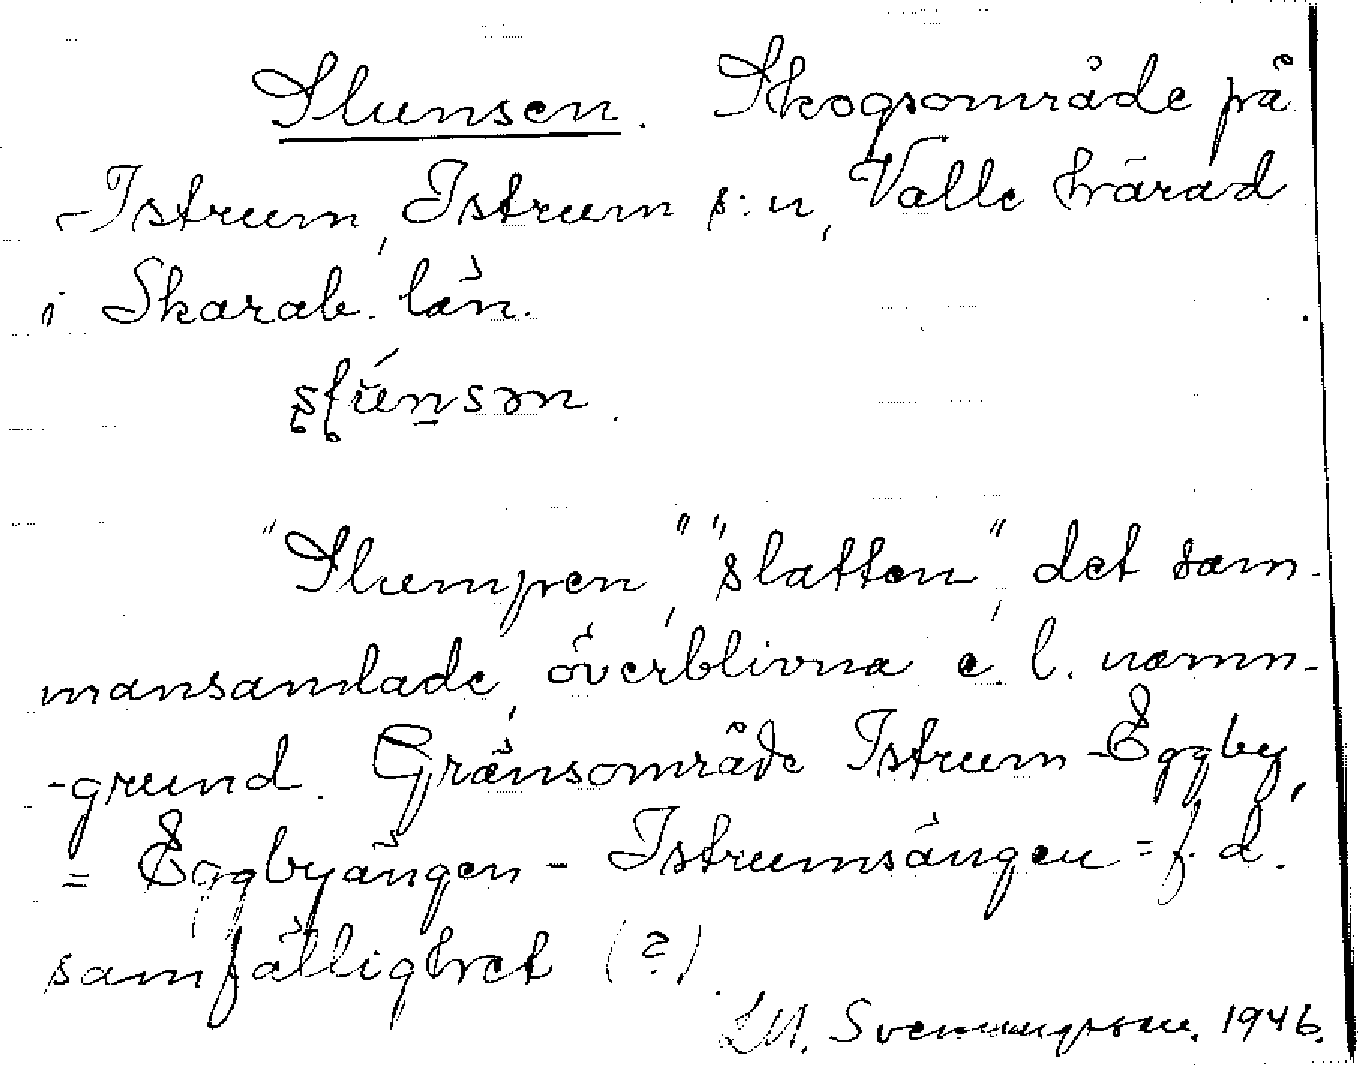 Slunsen. Skogsområde på
Istrum, Istrum s:n, Valle härad
i Skarab. län.
"Slumpen", "slatten", det sam-
mansamlade, överblivna e. l. namn-
-grund. Gränsområde Istrum-Eggby,
= Eggbyängen - Istrumsängen = f. d.
samfällighet (?).
LM. Svenungsson. 1946.